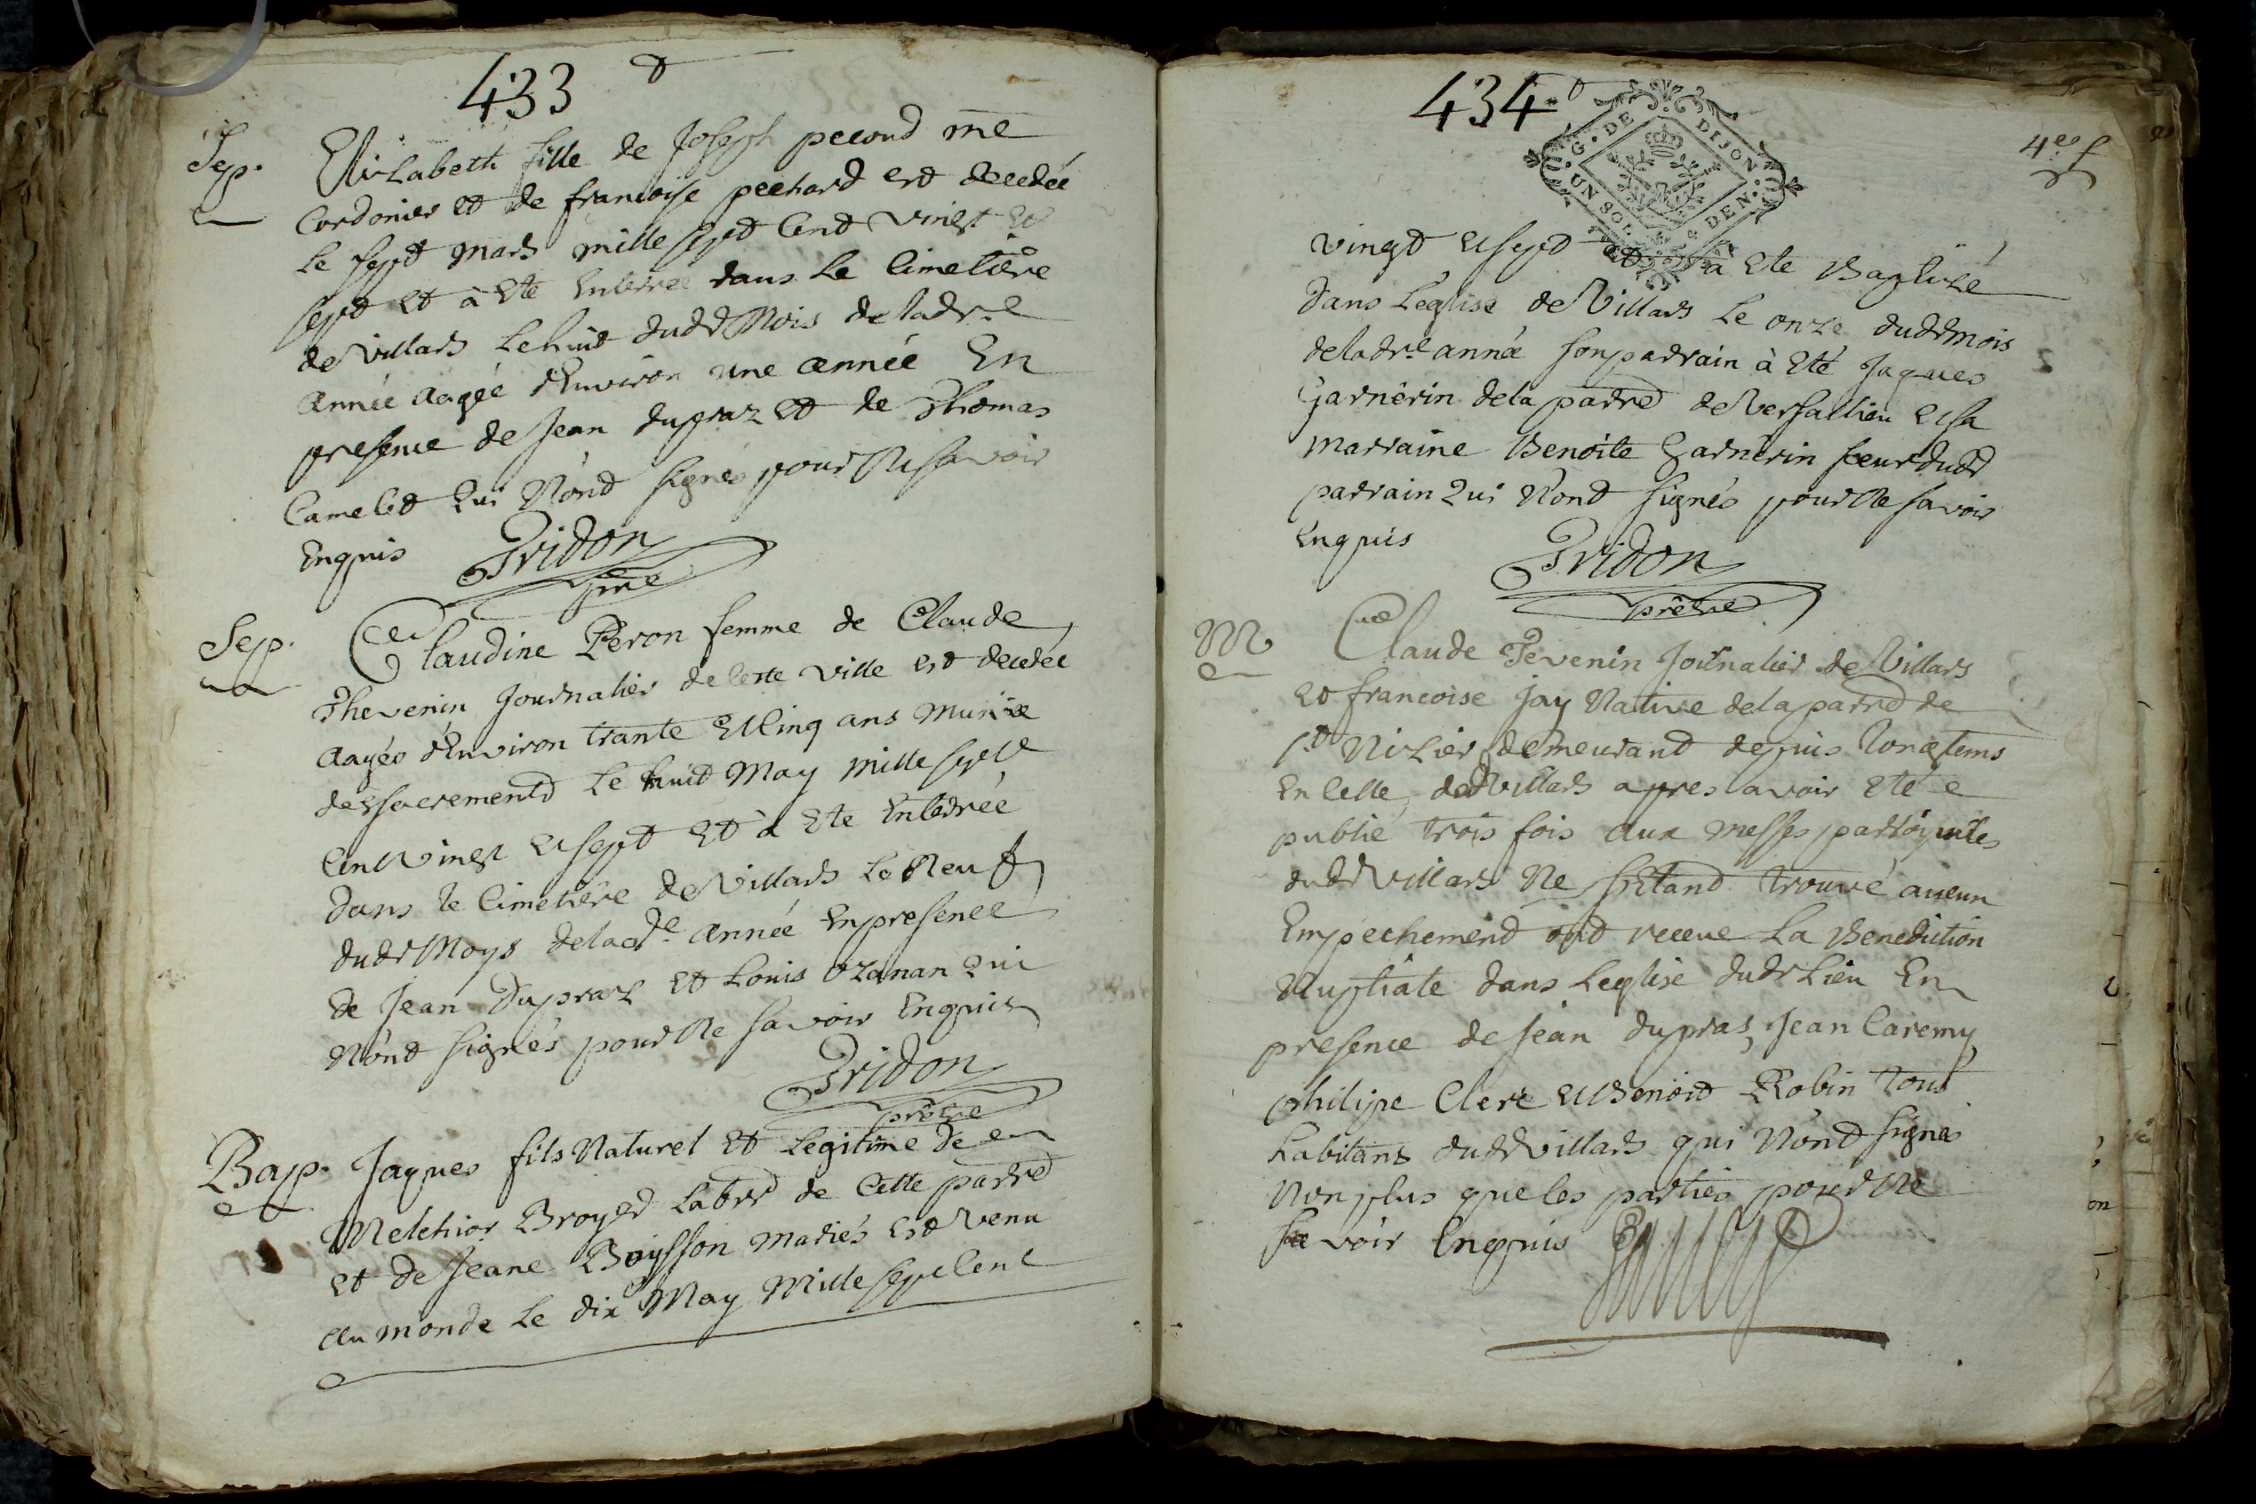 433
Sep.
Elizabeth fille de Joseph pecoud me
Cordonier et de francoise pechard est decedée
le sept mars mille sept cent vingt et
sept et à ete Enterree dans le Cimetiere
de Villars le huit dudt Mois de ladte
année aagée d'Environ une année En
presence de Jean dupraz et de Thomas
Camelet Qui N'ont signés pour Ne savoir
Enquis Pridon
ptre
Sep.
Claudine Peron femme de Claude
Thevenin Journalier de cette ville est decedée
aagés d'Environ trante Et Cinq ans Munie
des sacrements le huit May mille sept
Cent Vingt Et sept Et à Ete Enterrée
dans le Cimetiere de Villars le Neuf
dudt Moys de ladte année En presence
de Jean Dupraz et Louis Ozanan Qui
N'ont signés pour Ne savoir Enquis
Pridon
prêtre
Bap.
Jaques fils Naturel et Legitime de
Melchior Broyer Labrr de Cette parre
et de Jeane Boysson mariés est venu
au monde le dix May Mille sept Cent
434
G. DE DIJON
UN SOL DEN.
4e f
vingt Et sept et à Ete Baptizé
dans l'eglise de Villars le onze dudt mois
de ladte année son parrain à Eté Jaques
Garnerin de la parre de Versallieu Et sa
marraine Benoite Garnerin soeur dudt
parrain Qui N'ont signés pour Ne savoir
Enquis Pridon
prêtre
M
Claude Tevenin Journalier de Villars
et francoise Jay Native de la parre de
St Nizier demeurant depuis Longtems
En Celle de Villars apres avoir Ete
publié trois fois aux messes parroissiales
dudt Villars Ne s'Etant trouvé aucun
Empechement ont receue La Benediction
Nuptiale dans l'eglise dudt Lieu En
presence de Jean dupras, Jean Caremy
philipe Clere Et Benoit Robin tous
habitans dudt Villars qui N'ont signes
Non plus que les parties pour Ne
savoir Enquis